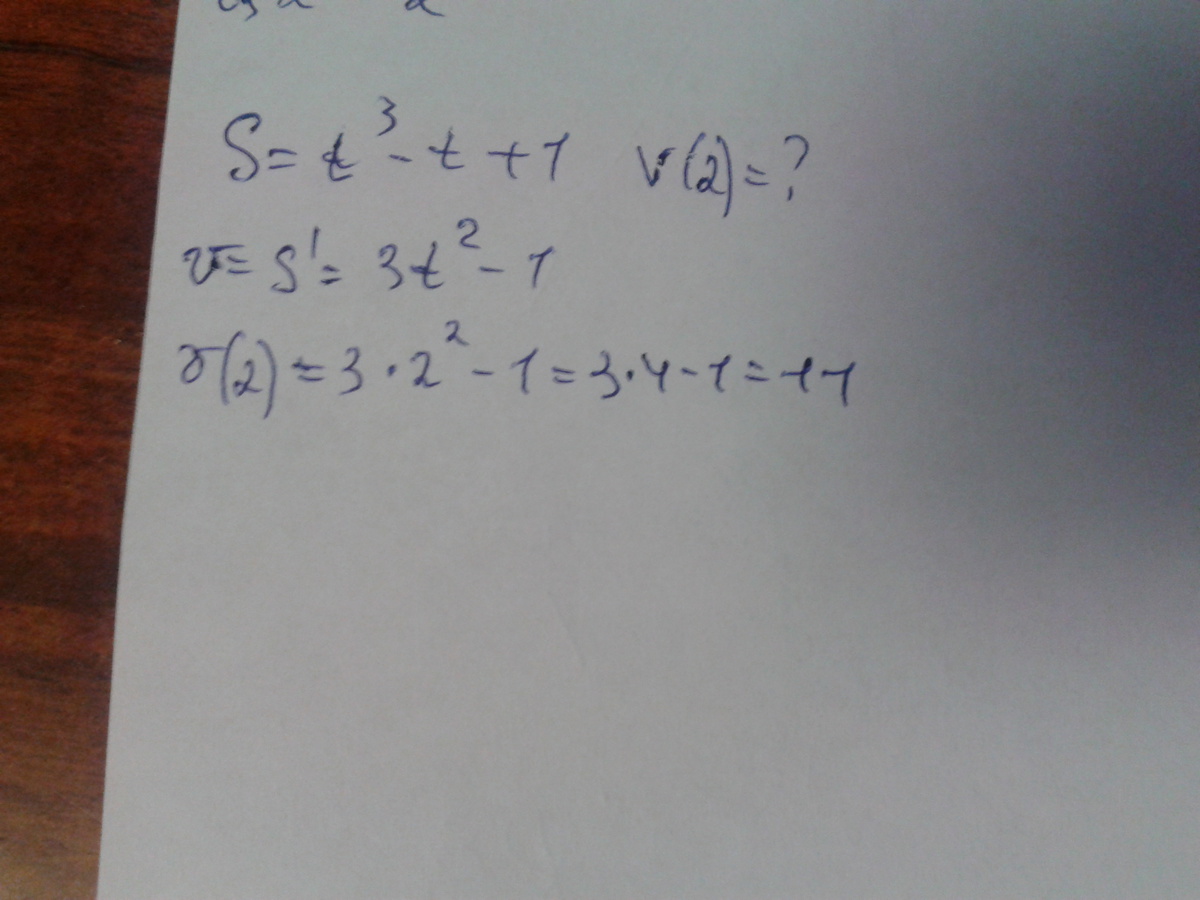 S = t³ - t + 1   v(2) = ?
v = S' = 3t² - 1
v(2) = 3 · 2² - 1 = 3 · 4 - 1 = 11